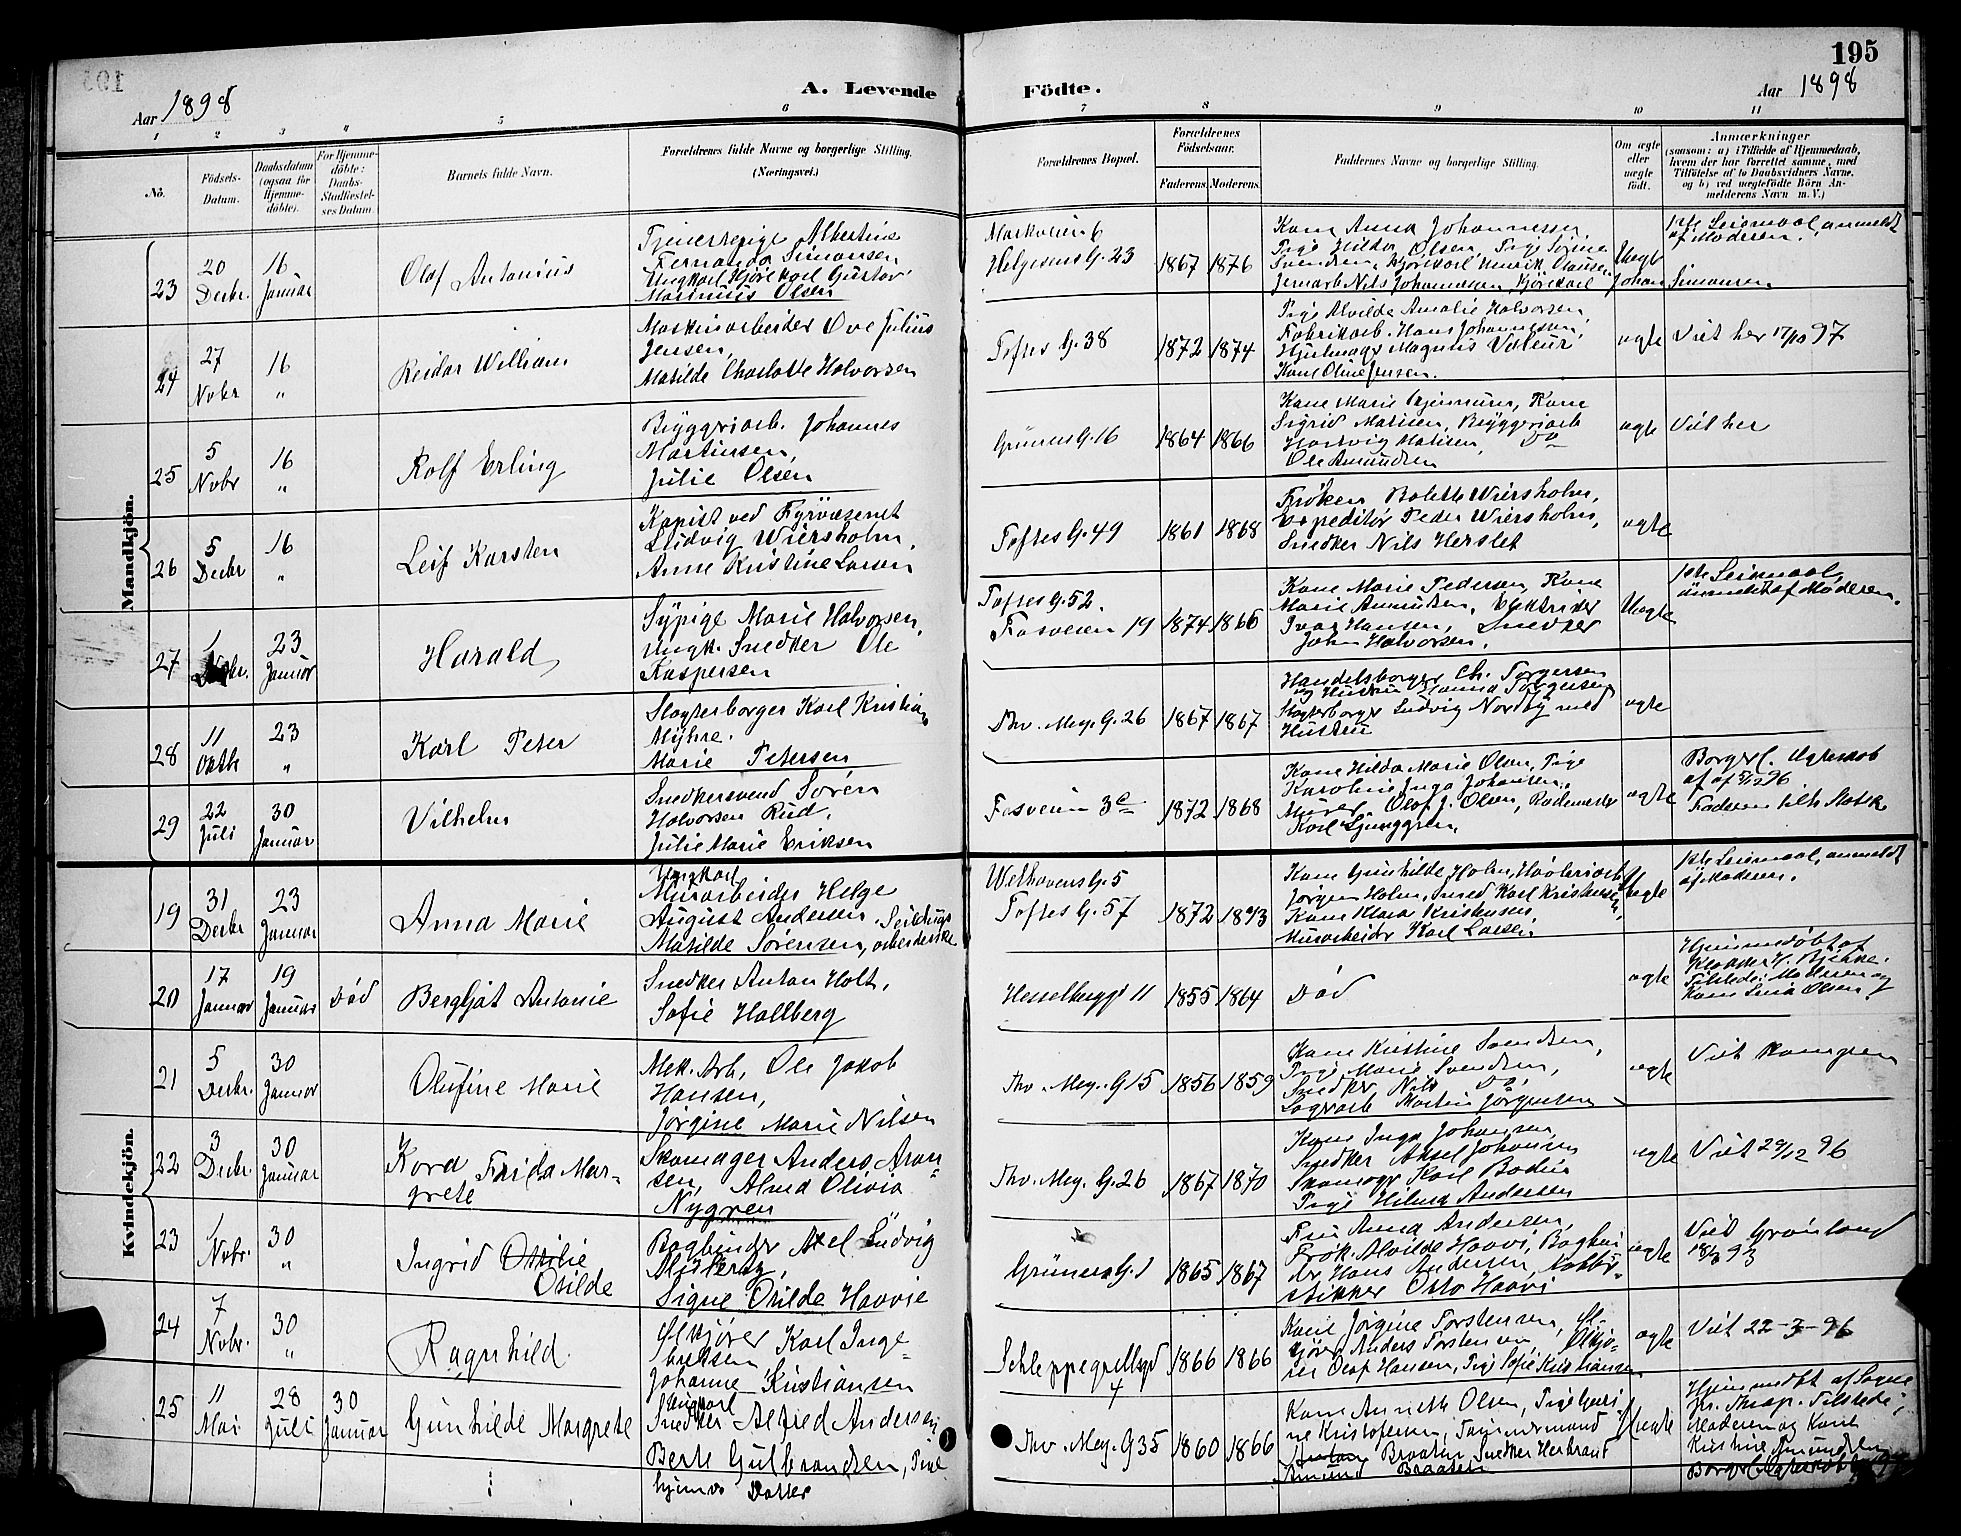 195
A. Levende Födte.
Aar 1898
Aar 1898
1 2 3 4 5 6 7 8 9 10 11
No.
Födsels-Datum.
Daabsdatum (ogsaa for Hjemmedöbte).
For Hjemmedöbte: Daabs-Stadfæstelses Datum
Barnets fulde Navn.
Forældrenes fulde Navne og borgerlige Stilling.
(Næringsvei.)
Forældrenes Bopæl.
Forældrenes Födselsaar.
Faderens. Moderens.
Faddernes Navne og borgerlige Stilling.
Om ægte eller uægte födt.
Anmærkninger
(saasom: a) i Tilfælde af Hjemmedaab,
hvem der har forrettet samme, med
Tilföielse af to Daabsvidners Navne,
og b) ved uægtefödte Börn Anmelderens Navn m. V.)
Mandkjön.
23 20 Decbr. 16 Januar
Olaf Antonius
Tjenestepige Albertine
Fernanda Simonsen
Ungkarl Kjørekarl Gustav
Marinius Olsen
Markveien 6
Helgesens G. 23
1867 1876
Kone Anna Johannesen,
Pige Hilda Olsen, Pige
Svendsen, Kjørekarl Henrik Clausen
Jernarb Nils Johannesen, Kjørekarl Johan Simonsen.
Uægte
1ste Leiermaal, anmeldt
af Moderen.
24 27 Novbr 16 "
Reidar William
Maskinarbeider Ove Julius
Jensen,
Matilde Charlotte Halvorsen
Toftes G. 38
1872 1874
Pige Alvilde Amalie Halvorsen,
Fabrikarb. Hans Johannesen,
Hjulmager Magnus
Kone Oline Jensen.
ægte
Viet her 17/10 97
25 5 Novbr 16 "
Rolf Erling
Bryggeriarb. Johannes
Martinsen,
Julie Olsen
Grüners G. 16
1864 1866
Kone Marie
Sigrid Matisen, Bryggeriarb
Hartvig Matisen, Do
Ole Amundsen
ægte
Viet her
26 5 Decbr 16 "
Leif Karsten
Kopist ved Fyrvæsenet
Ludvig Wiersholm,
Anne Kristine Larsen
Toftes G. 49
1861 1868
Frøken Bolette Wiersholm,
Expeditør Peder Wiersholm,
Snedker Nils Herslet
ægte
27 1 23 Januar
Harald
Sypige Marie Halvorsen,
Ungk. Snedker Ole
Kaspersen
Toftes G. 52.
Fosveien 19
1874 1866
Kone Marie Pedersen, Kone
Marie Amundsen,
Ivar Hansen, Snedker
John Halvorsen.
Uægte
1ste Leiermaal,
anmeldt af Moderen.
28 11 Octb 23 "
Karl Peter
Slagterborger Karl Kristian
Myhre.
Marie Petersen
Thv. Mey. G. 26
1867 1867
Handelsborger Ch. Torgersen
og Hustru Hanna Torgersen
Slagterborger Ludvig Nordby med
Hustru
ægte
29 22 Juli 30 Januar
Vilhelm
Snedkersvend Søren
Halvorsen Rud,
Julie Marie Eriksen
Fosveien 3c
1872 1868
Kone Hilda Marie Olsen, Pige
Karoline Inga Johansen,
Murer Olaf J. Olsen, Rodemester
Karl Ljunggren.
ægte
Borgerl. Ægteskab
Faderen tilh Statsk
Kvindekjön.
19 31 Decbr 23 Januar
Anna Marie
Ungkarl
Murarbeider Helge
August Andersen, Seildugs
Matilde Sørensen, arbeiderske
Welhavens G. 5
Toftes G. 57
1872 1873
Kone Gunhilde Holm,
Jørgen Holm, Smed Karl Kristensen,
Kone Klara Kristensen,
Murarbeider Karl Larsen
Uægte
1ste Leiermaal, anmeldt
af Moderen.
20 17 Januar 19 Januar Død
Bergljot Antonie
Snedker Anton Holt,
Sofie Hallberg
Hesselbergsgd 11
1855 1864
Død
ægte
Hjemmedøbt af
Klokker H. Bjerke.
Tilstede: Moderen og
Kone Olsen
21 5 Decbr. 30 Januar
Olufine Marie
Mek. Arb. Ole Jakob
Hansen,
Jørgine Marie Nilsen
Thv. Mey. G. 15
1856 1859
Kone Kristine Svendsen,
Pige Marie Svendsen,
Snedker Nils Do,
Sagarb Martin Jørgensen
ægte
Viet
22 3 Decbr 30 Januar
Kora Frida Margrete
Skomager Anders Aronsen,
Alma Olivia
Nygren
Thv. Mey. G. 26
1867 1870
Kone Inga Johansen,
Snedker Aksel Johansen
Skomager Karl Bodin
Pige Hilma Andersen
ægte
Viet 29/12 96
23 1 Novbr. 30 "
Ingrid Otilde
Bogbinder Axel Ludvig
Signe Otilde Haavie
Grüners G. 1
1865 1867
Fru Anna Andersen,
Frøk. Alvilde Haavi, Bogbinder
Hans Andersen,
stikker Otto Haavi
ægte
Viet Grønland
24 7 Novbr. 30 "
Ragnhild
Ølkjører Karl Ingebretsen
Johanne Kristiansen
Schleppegrellsgd 4
1866 1866
Kone Jørgine Torstensen, Ølkjører
Anders Torstensen, Ølkjører
Olaf Hansen, Pige Sofie Kristiansen
ægte
Viet 22-3-96
25 11 Mai 28 Juli 30 Januar
Gunhilde Margrete
Ungkarl
Snedker Alfred Andersen
Berte Gulbrandsen, Pige
hjemv. Datter
Thv. Mey. G. 35
1860 1866
Kone Annette Olsen, Pige
Kristofersen, Tømmermand
Braaten, Snedker Herbrant
Amund Braaten
Uægte
Hjemmedøbt af Sogne
pr. Thrap. Tilstede:
Moderen og Kone
Kristine Amundsen
Borgerl. Ægteskab